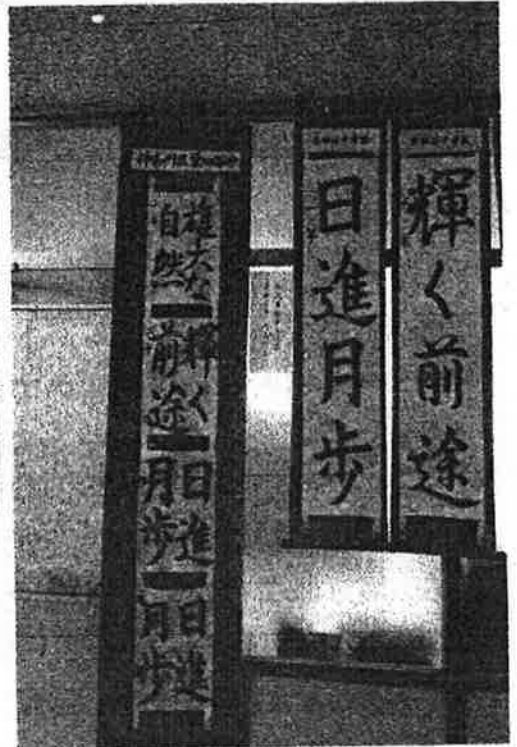 輝く前途
日進月歩
雄大な
自然
輝く
前途
日進
月歩
日進
月歩